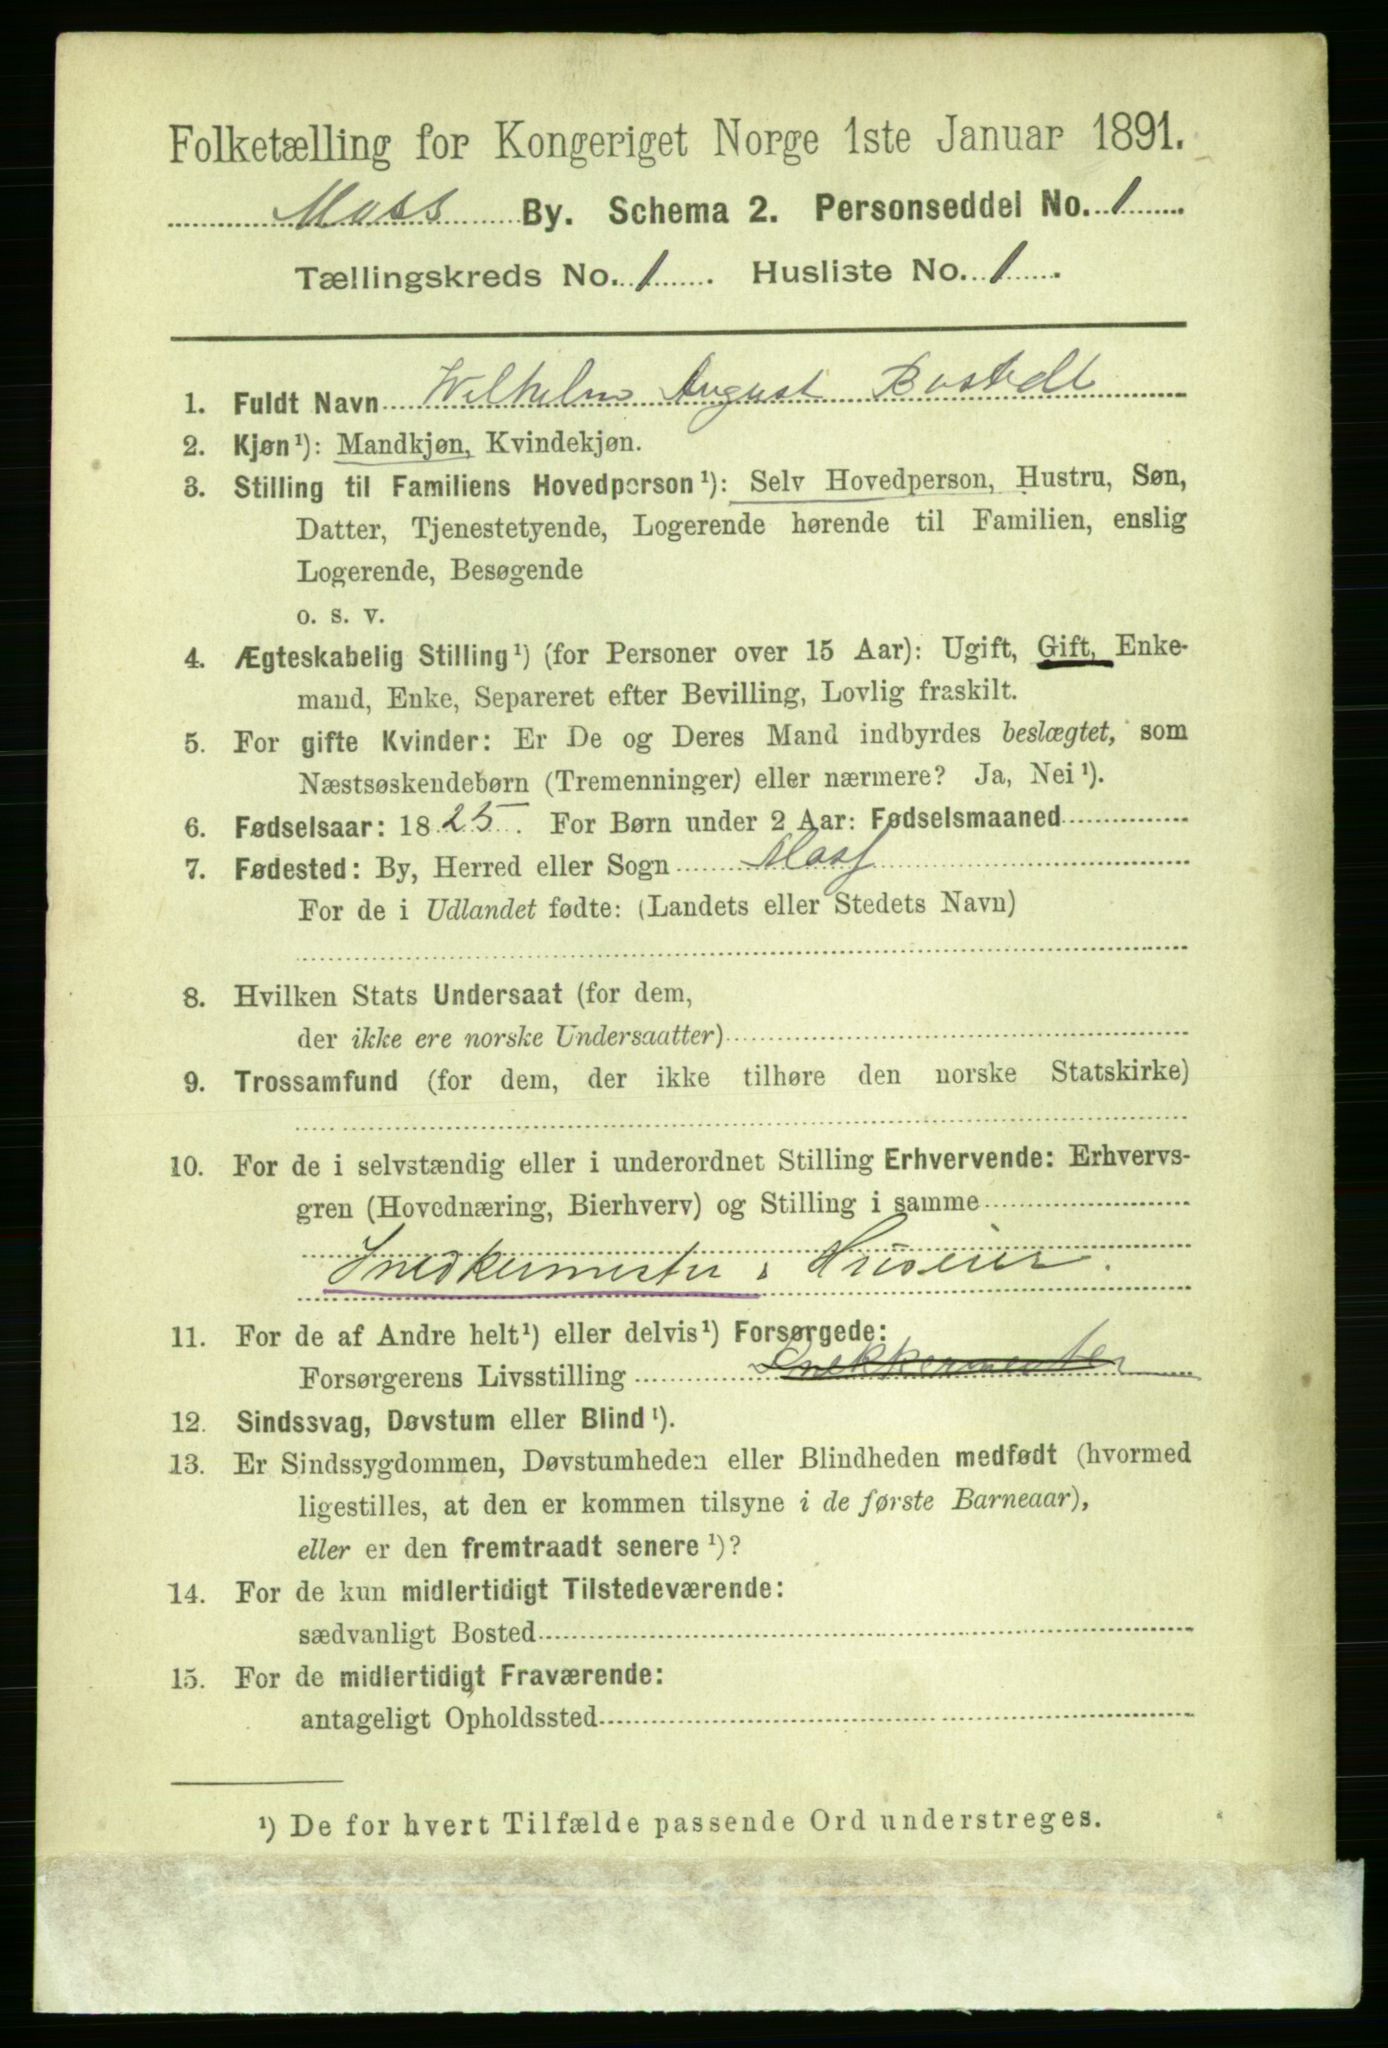 Folketælling for Kongeriget Norge 1ste Januar 1891.
Moss By. Schema 2. Personseddel No. 1
Tællingskreds No. 1. Husliste No. 1.
1. Fuldt Navn Wilhelm August Bostedt
2. Kjøn¹): Mandkjøn, Kvindekjøn.
3. Stilling til Familiens Hovedperson¹): Selv Hovedperson, Hustru, Søn,
Datter, Tjenestetyende, Logerende hørende til Familien, enslig
Logerende, Besøgende
o. s. v.
4. Ægteskabelig Stilling¹) (for Personer over 15 Aar): Ugift, Gift, Enke-
mand, Enke, Separeret efter Bevilling, Lovlig fraskilt.
5. For gifte Kvinder: Er De og Deres Mand indbyrdes beslægtet, som
Næstsøskendebørn (Tremenninger) eller nærmere? Ja, Nei¹).
6. Fødselsaar: 1825. For Børn under 2 Aar: Fødselsmaaned
7. Fødested: By, Herred eller Sogn Moss
For de i Udlandet fødte: (Landets eller Stedets Navn)
8. Hvilken Stats Undersaat (for dem,
der ikke ere norske Undersaatter)
9. Trossamfund (for dem, der ikke tilhøre den norske Statskirke)
10. For de i selvstændig eller i underordnet Stilling Erhvervende: Erhvervs-
gren (Hovednæring, Bierhverv) og Stilling i samme
Snedkermester, Huseier.
11. For de af Andre helt¹) eller delvis¹) Forsørgede:
Forsørgerens Livsstilling Snekkermester
12. Sindssvag, Døvstum eller Blind¹).
13. Er Sindssygdommen, Døvstumheden eller Blindheden medfødt (hvormed
ligestilles, at den er kommen tilsyne i de første Barneaar),
eller er den fremtraadt senere¹)?
14. For de kun midlertidigt Tilstedeværende:
sædvanligt Bosted
15. For de midlertidigt Fraværende:
antageligt Opholdssted
¹) De for hvert Tilfælde passende Ord understreges.